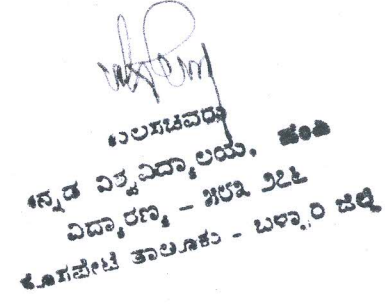 ಕುಲಸಚಿವರು
ಕನ್ನಡ ವಿಶ್ವವಿದ್ಯಾಲಯ, ಹಂಪಿ
ವಿದ್ಯಾರಣ್ಯ - ೫೮೩ ೨೭೬
ಹೊಸಪೇಟೆ ತಾಲೂಕು - ಬಳ್ಳಾರಿ ಜಿಲ್ಲೆ